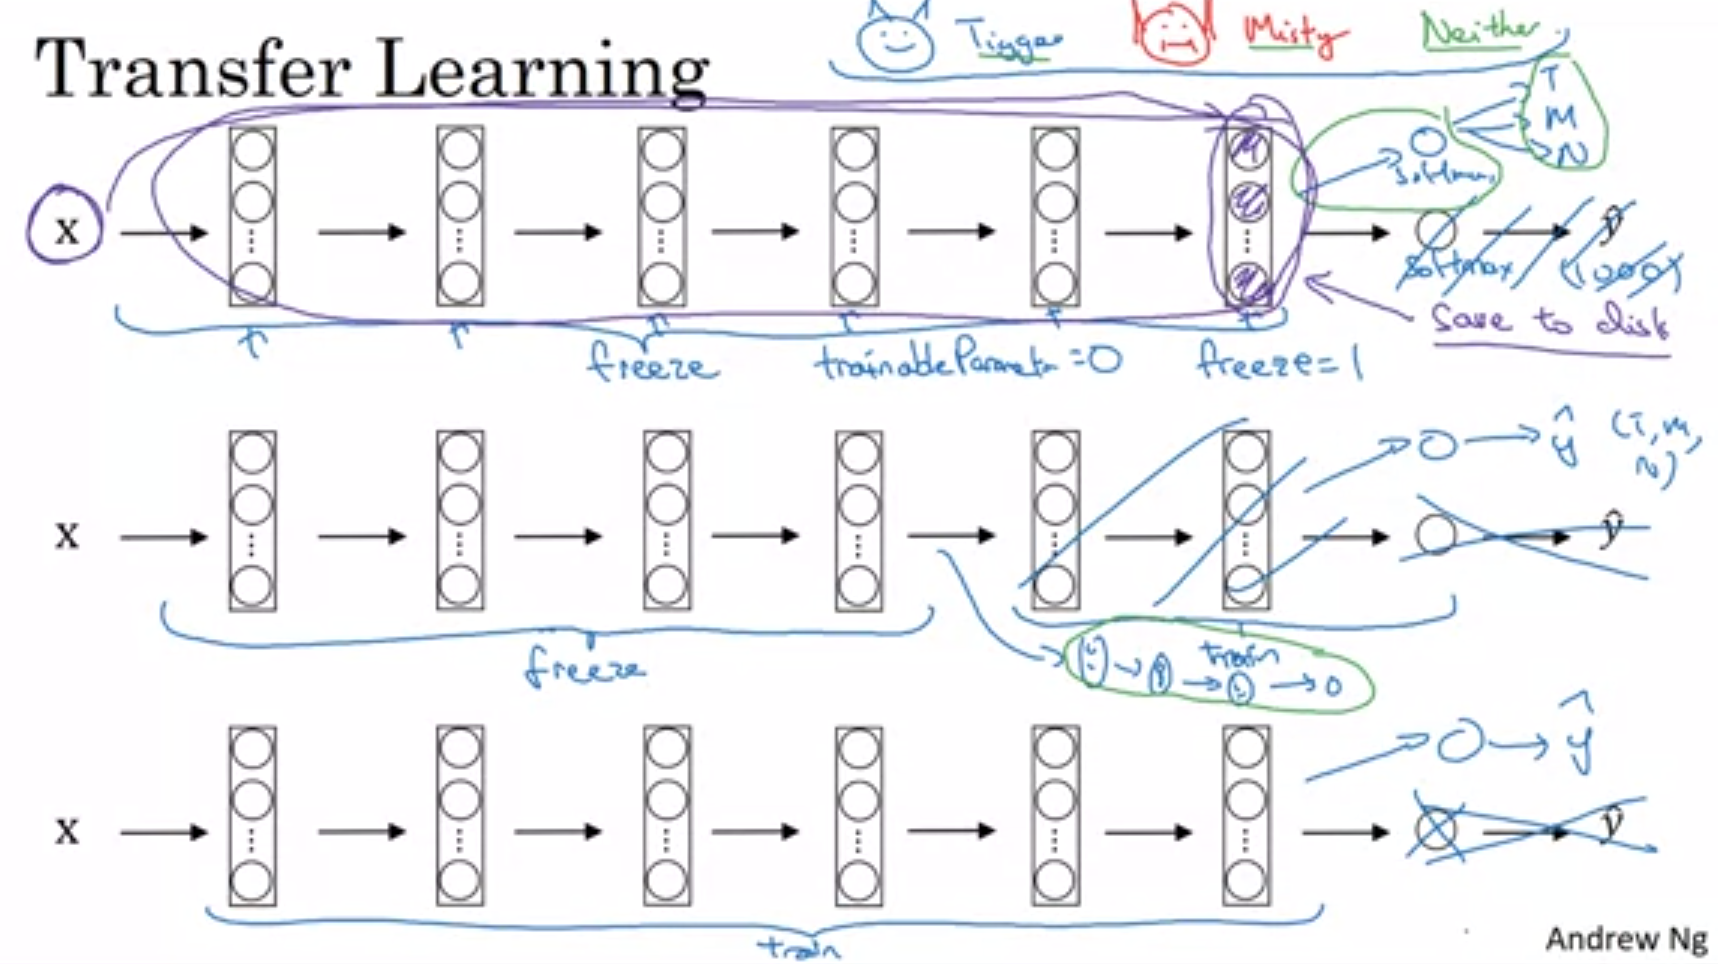 Transfer Learning
Tigger Misty Neither
T
M
N
softmax
x
softmax ŷ
(1000)
Save to disk
r r r r r r
freeze trainableParameter=0 freeze=1
ŷ (T, M,
N)
x ŷ
train
freeze
ŷ
x ŷ
train
Andrew Ng